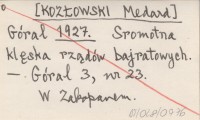 [KOZŁOWSKI Medard]
Góral 1927. Sromotna
klęska rządów bajratowych.
– Góral 3, nr 23.
W Zakopanem.